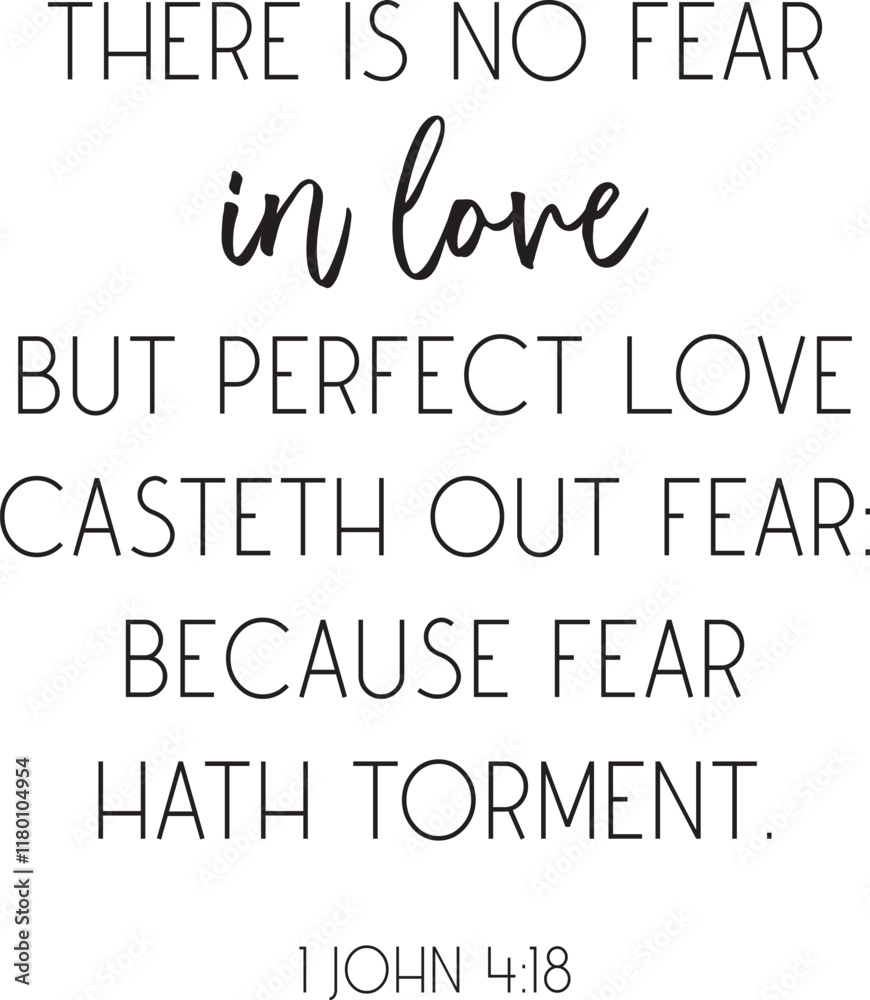 THERE IS NO FEAR
in love
BUT PERFECT LOVE
CASTETH OUT FEAR:
BECAUSE FEAR
HATH TORMENT.
1 JOHN 4:18
Adobe Stock | #1180104954